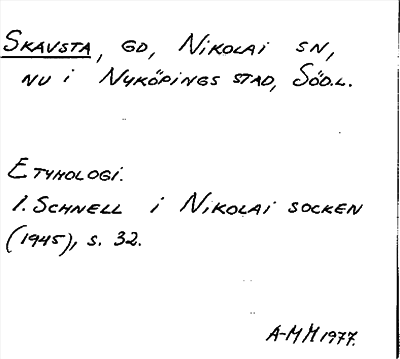 SKAVSTA, GD, NIKOLAI SN,
NU I NYKÖPINGS STAD, SÖD.L.
ETYMOLOGI.
I. SCHNELL I NIKOLAI SOCKEN
(1945), S. 32.
A-MM 1977.